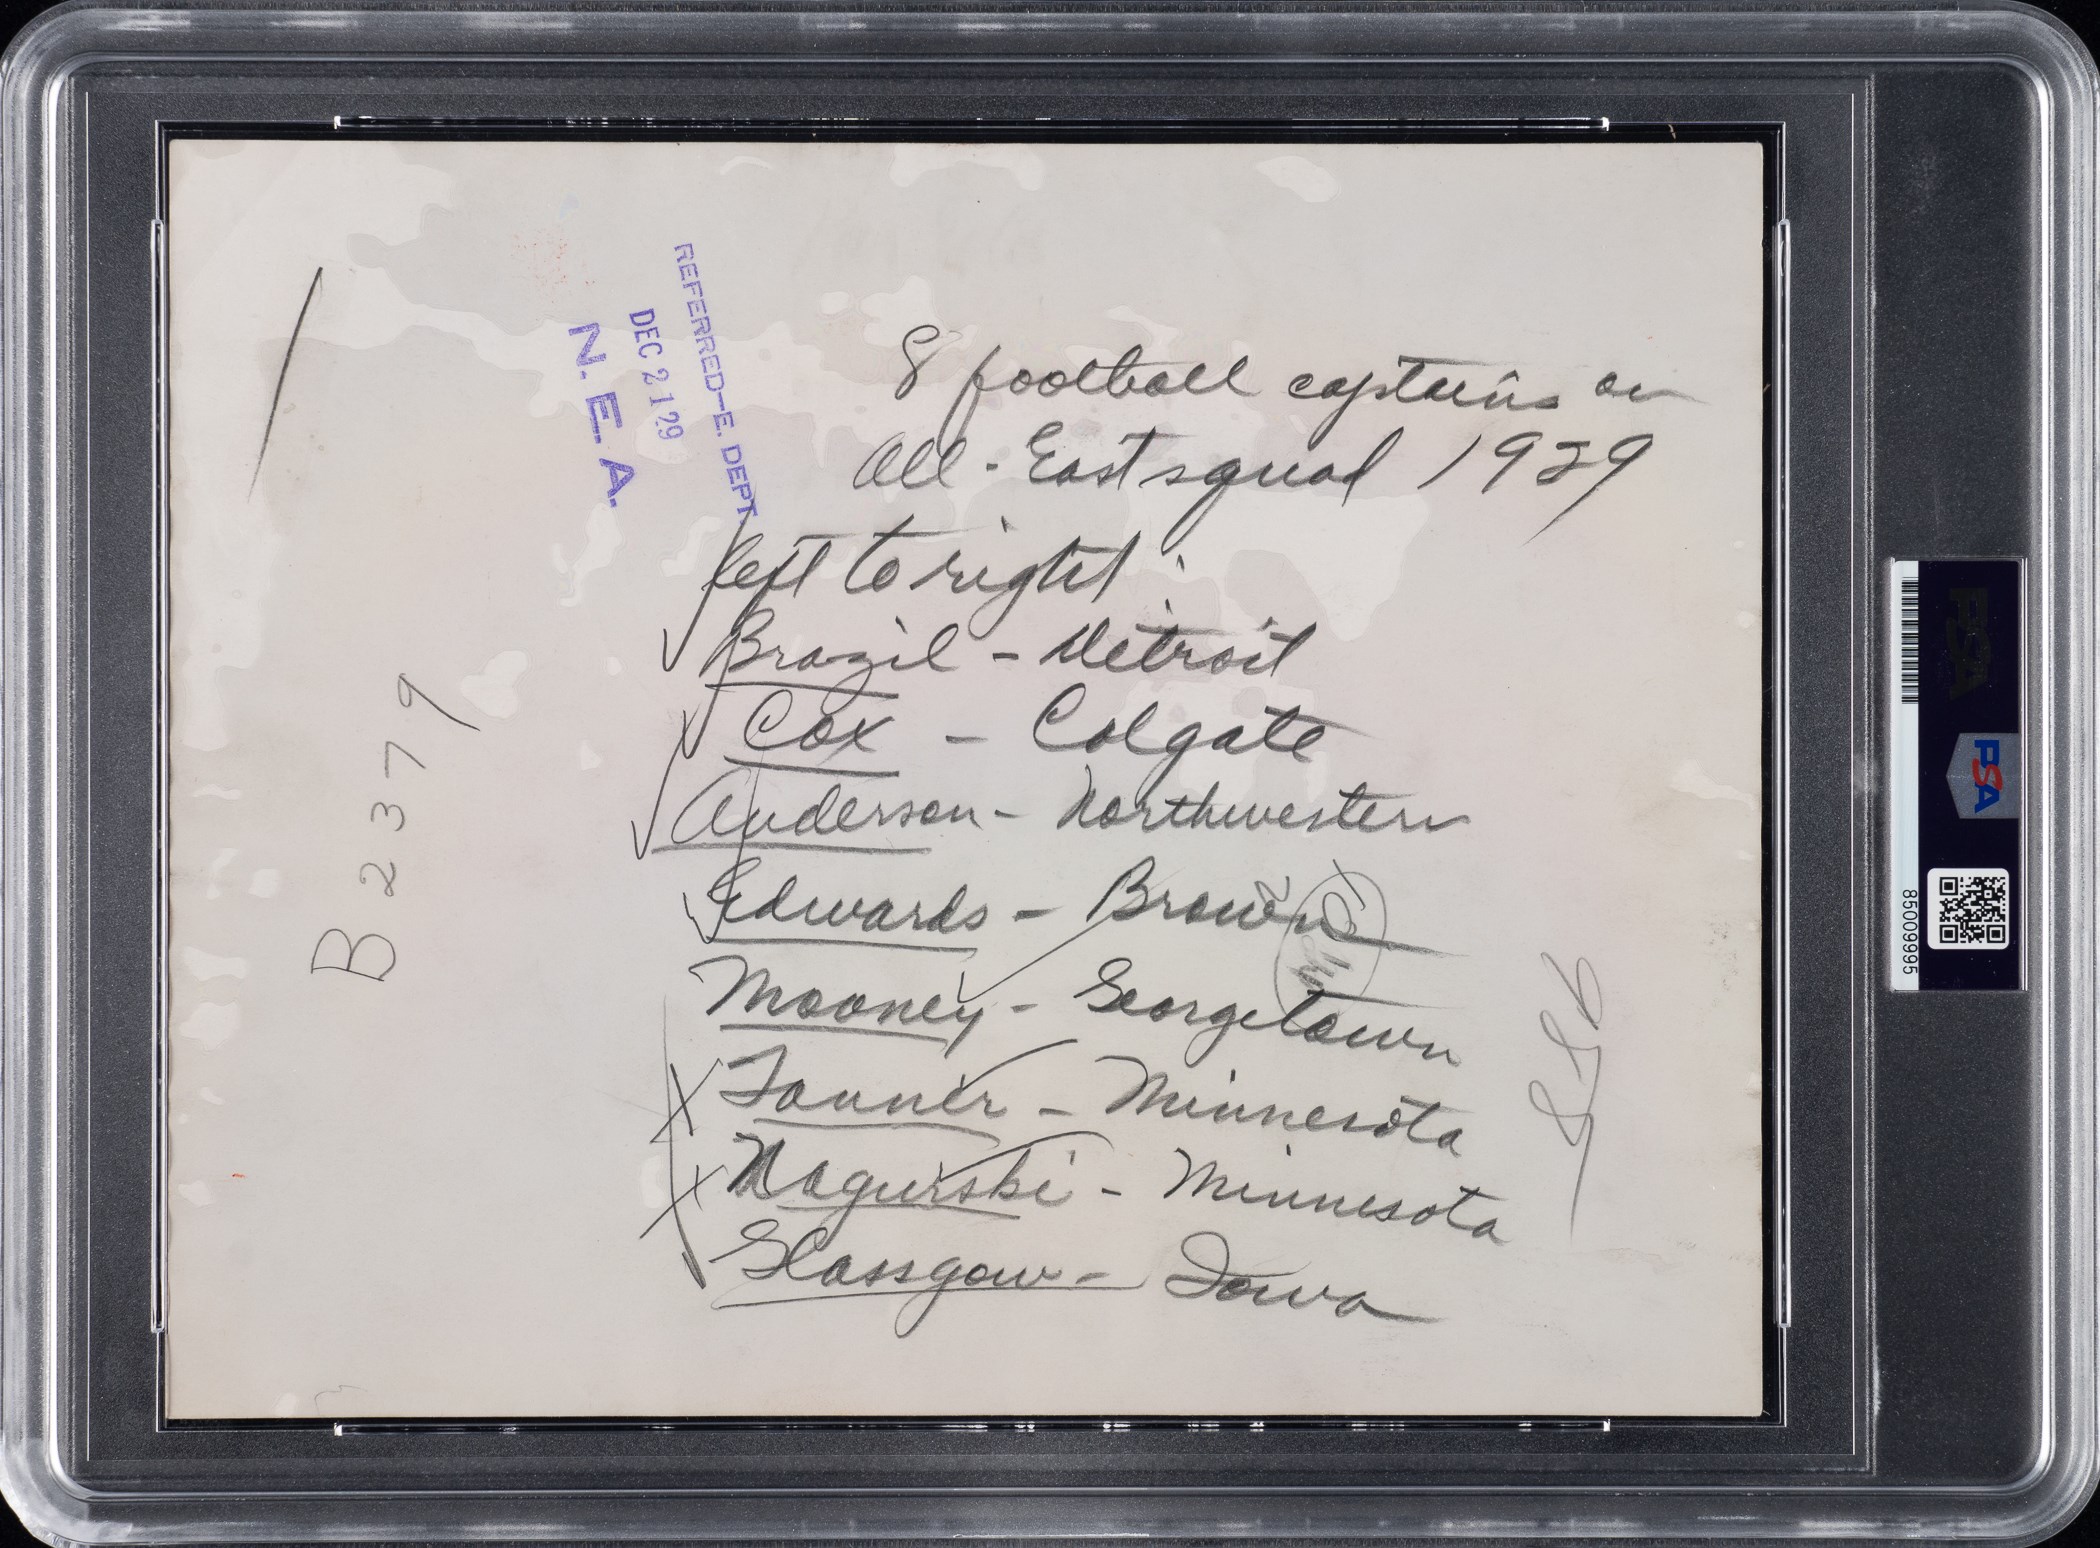 REFERRED-E. DEPT.
DEC 21 29
N. E. A.
8 football captains on
All-East squad 1929
left to right:
Brazil - Detroit
Cox - Colgate
Anderson - Northwestern
Edwards - Brown
Mooney - Georgetown
Tanner - Minnesota
Nagurski - Minnesota
Glassgow - Iowa
B2379
PSA
PSA
85009995